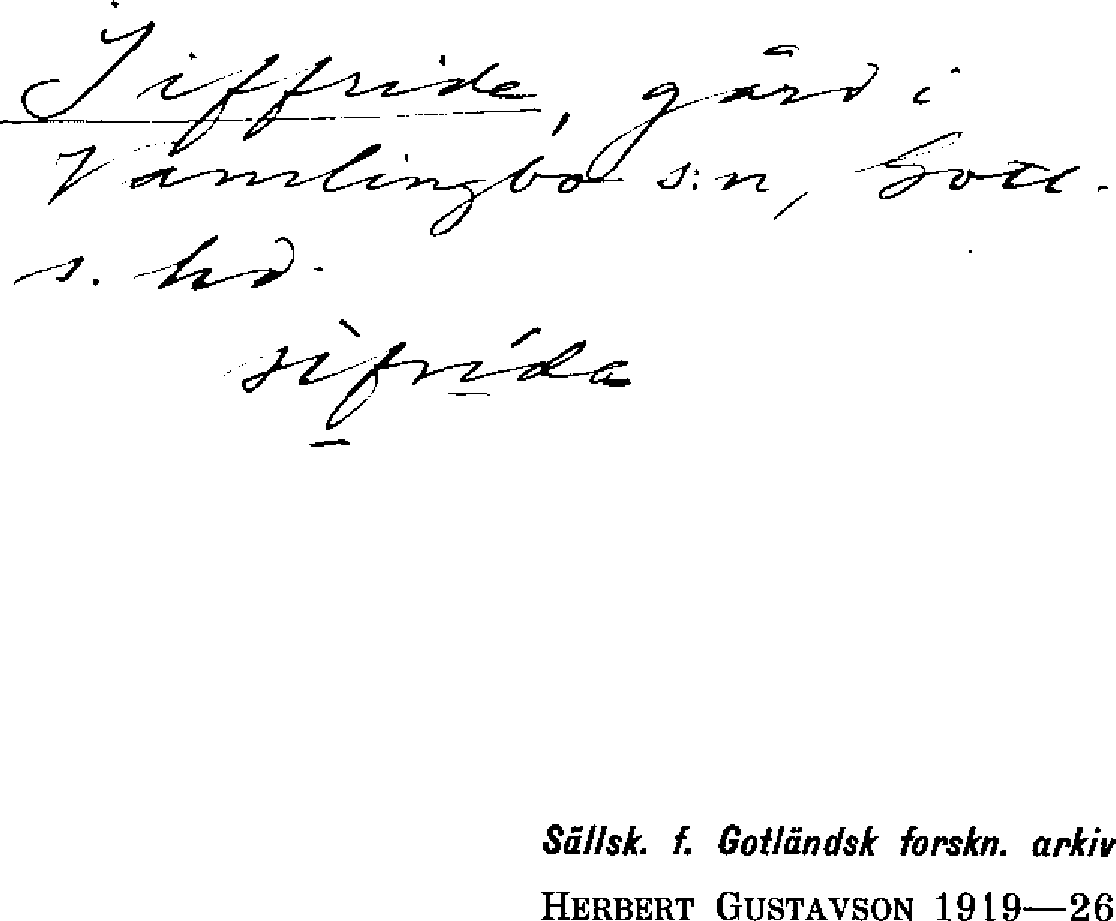 Siffride, gård i
Vamlingbo s:n, Gotl.
s. hd.
sìfrída
Sällsk. f. Gotländsk forskn. arkiv
HERBERT GUSTAVSON 1919—26